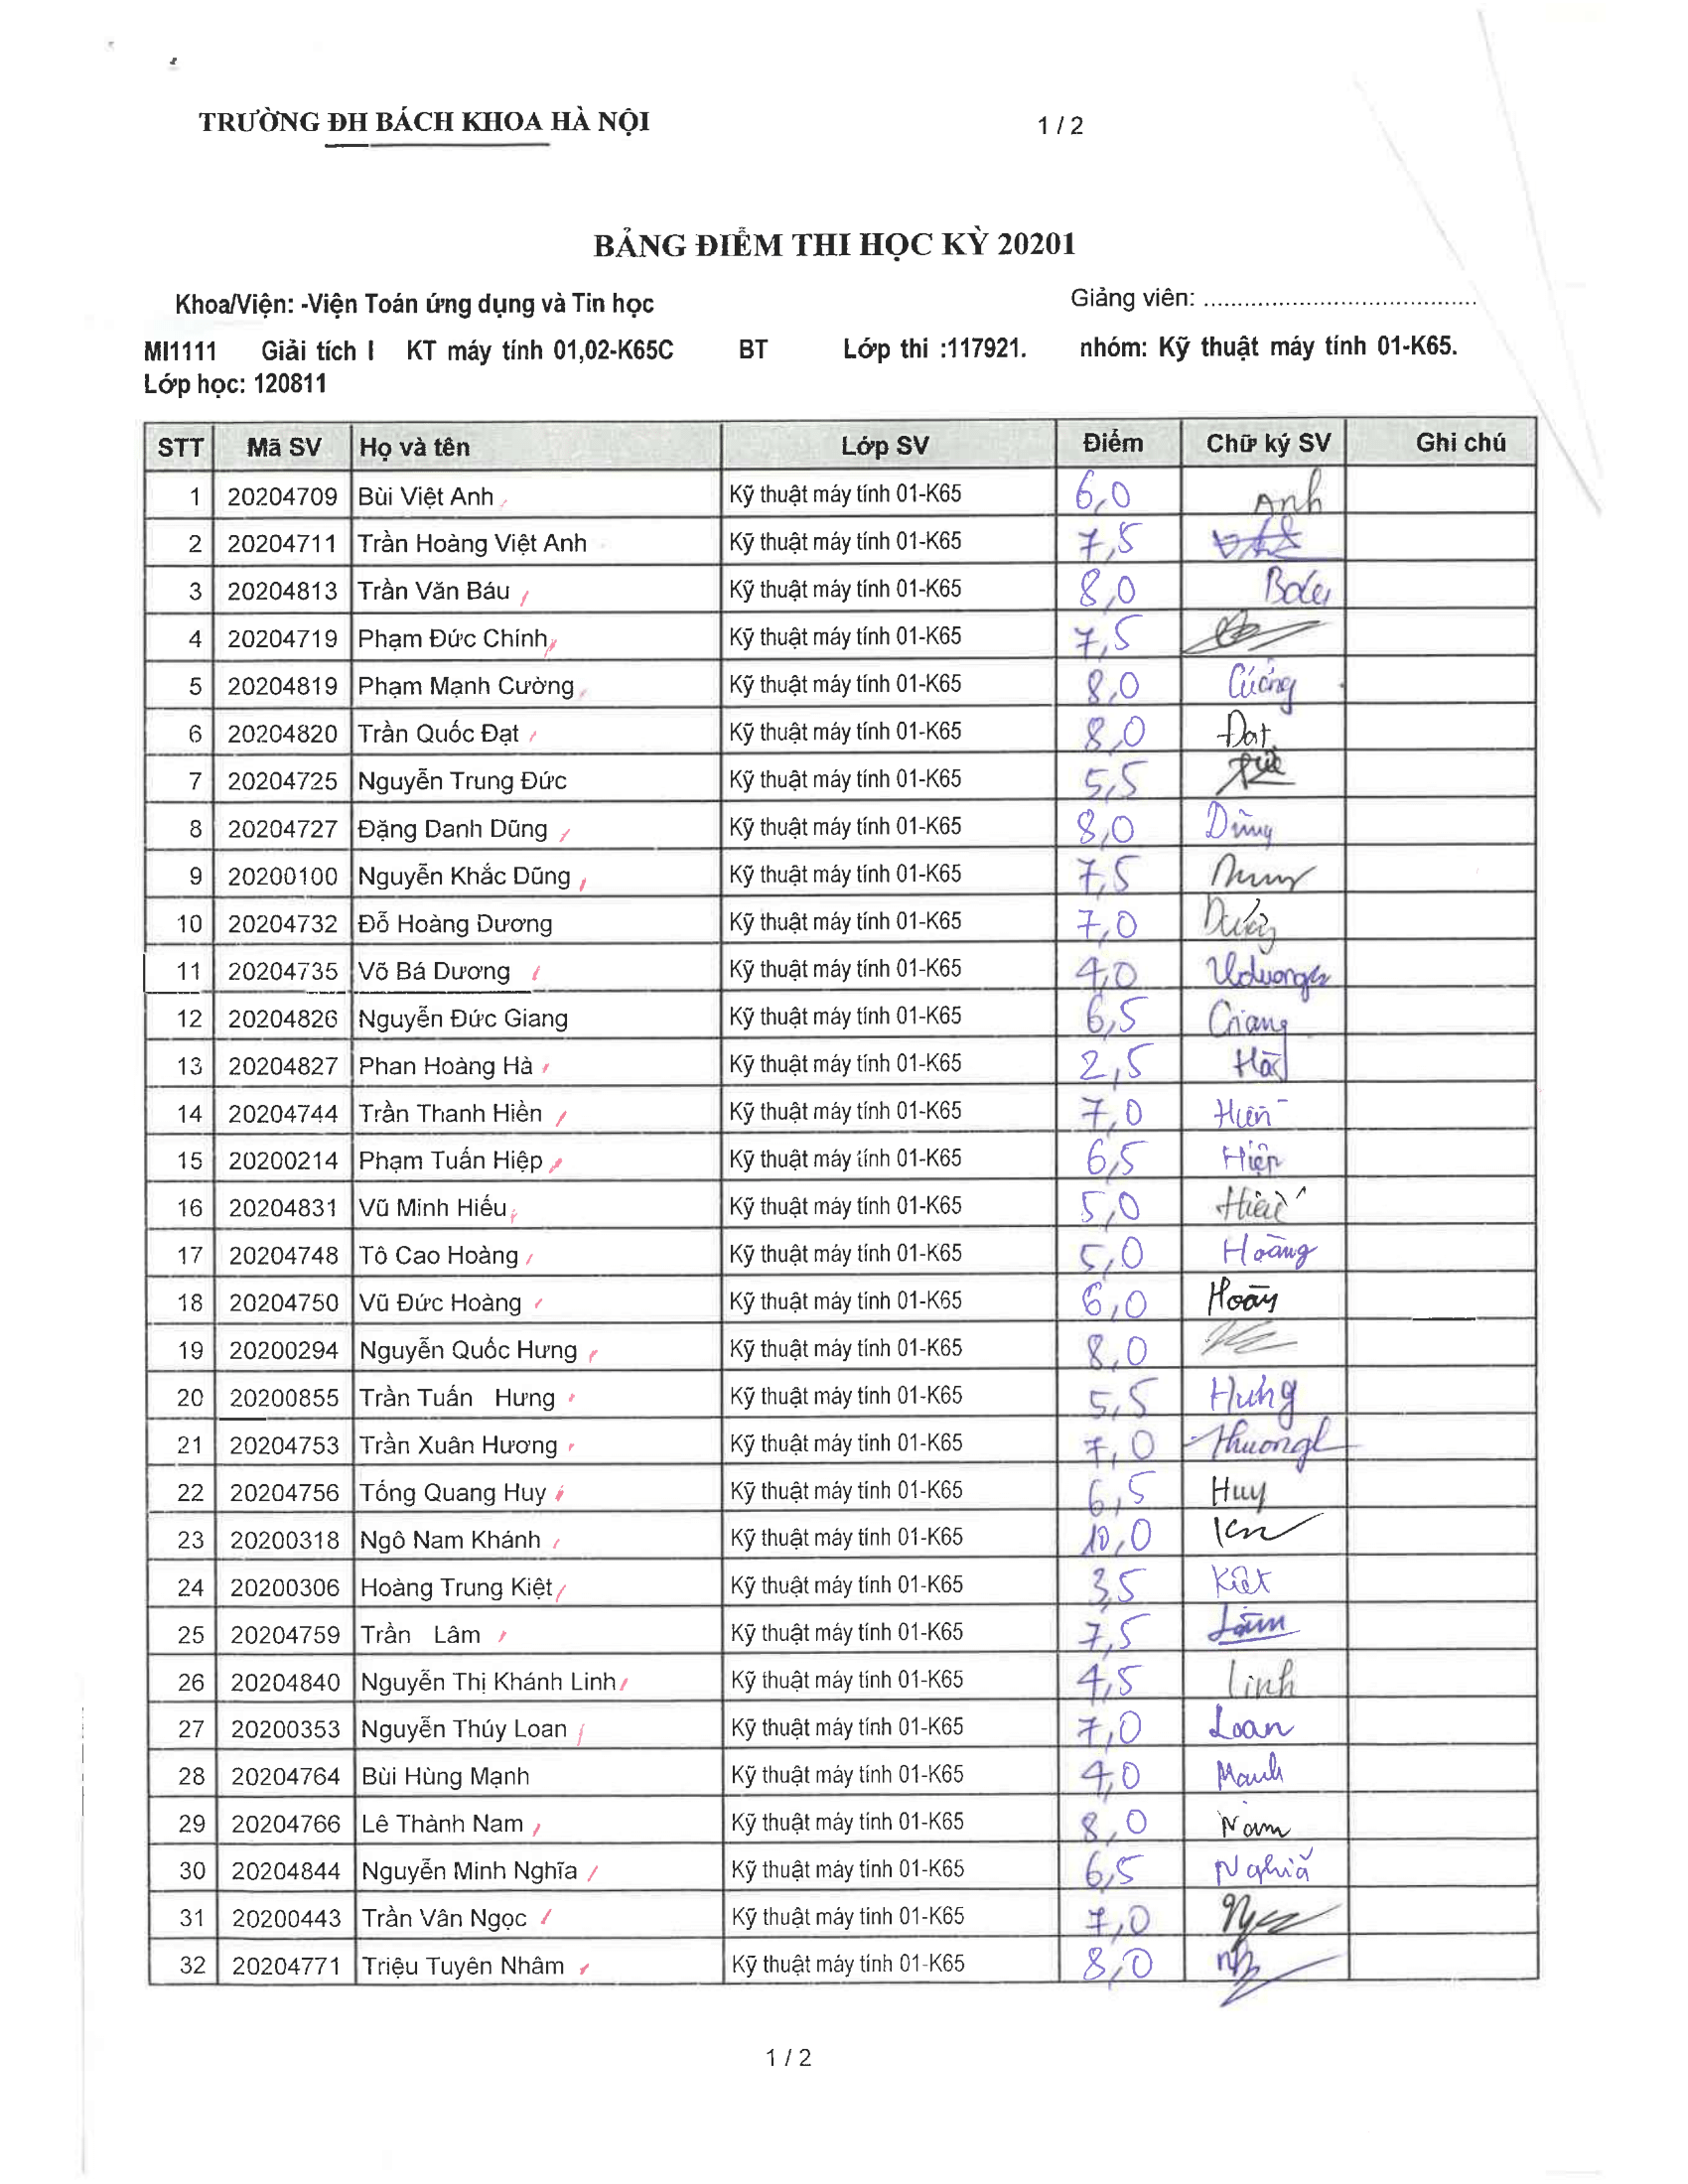 TRƯỜNG ĐH BÁCH KHOA HÀ NỘI 1 / 2
BẢNG ĐIỂM THI HỌC KỲ 20201
Khoa/Viện: -Viện Toán ứng dụng và Tin học Giảng viên: ........................................
MI1111 Giải tích I KT máy tính 01,02-K65C BT Lớp thi :117921. nhóm: Kỹ thuật máy tính 01-K65.
Lớp học: 120811
STT Mã SV Họ và tên Lớp SV Điểm Chữ ký SV Ghi chú
1 20204709 Bùi Việt Anh Kỹ thuật máy tính 01-K65 6,0 Anh
2 20204711 Trần Hoàng Việt Anh Kỹ thuật máy tính 01-K65 7,5
3 20204813 Trần Văn Báu Kỹ thuật máy tính 01-K65 8,0
4 20204719 Phạm Đức Chính Kỹ thuật máy tính 01-K65 7,5
5 20204819 Phạm Mạnh Cường Kỹ thuật máy tính 01-K65 8,0 Cường
6 20204820 Trần Quốc Đạt Kỹ thuật máy tính 01-K65 8,0 Đạt
7 20204725 Nguyễn Trung Đức Kỹ thuật máy tính 01-K65 5,5
8 20204727 Đặng Danh Dũng Kỹ thuật máy tính 01-K65 8,0 Dũng
9 20200100 Nguyễn Khắc Dũng Kỹ thuật máy tính 01-K65 7,5
10 20204732 Đỗ Hoàng Dương Kỹ thuật máy tính 01-K65 7,0
11 20204735 Võ Bá Dương Kỹ thuật máy tính 01-K65 4,0
12 20204826 Nguyễn Đức Giang Kỹ thuật máy tính 01-K65 6,5 Giang
13 20204827 Phan Hoàng Hà Kỹ thuật máy tính 01-K65 2,5 Hà
14 20204744 Trần Thanh Hiền Kỹ thuật máy tính 01-K65 7,0 Hiền
15 20200214 Phạm Tuấn Hiệp Kỹ thuật máy tính 01-K65 6,5 Hiệp
16 20204831 Vũ Minh Hiếu Kỹ thuật máy tính 01-K65 5,0 Hiếu
17 20204748 Tô Cao Hoàng Kỹ thuật máy tính 01-K65 5,0 Hoàng
18 20204750 Vũ Đức Hoàng Kỹ thuật máy tính 01-K65 6,0
19 20200294 Nguyễn Quốc Hưng Kỹ thuật máy tính 01-K65 8,0
20 20200855 Trần Tuấn Hưng Kỹ thuật máy tính 01-K65 5,5 Hưng
21 20204753 Trần Xuân Hương Kỹ thuật máy tính 01-K65 7,0
22 20204756 Tống Quang Huy Kỹ thuật máy tính 01-K65 6,5 Huy
23 20200318 Ngô Nam Khánh Kỹ thuật máy tính 01-K65 10,0
24 20200306 Hoàng Trung Kiệt Kỹ thuật máy tính 01-K65 3,5 Kiệt
25 20204759 Trần Lâm Kỹ thuật máy tính 01-K65 7,5 Lâm
26 20204840 Nguyễn Thị Khánh Linh Kỹ thuật máy tính 01-K65 4,5 Linh
27 20200353 Nguyễn Thúy Loan Kỹ thuật máy tính 01-K65 7,0 Loan
28 20204764 Bùi Hùng Mạnh Kỹ thuật máy tính 01-K65 4,0 Mạnh
29 20204766 Lê Thành Nam Kỹ thuật máy tính 01-K65 8,0 Nam
30 20204844 Nguyễn Minh Nghĩa Kỹ thuật máy tính 01-K65 6,5 Nghĩa
31 20200443 Trần Vân Ngọc Kỹ thuật máy tính 01-K65 7,0
32 20204771 Triệu Tuyên Nhâm Kỹ thuật máy tính 01-K65 8,0
1 / 2